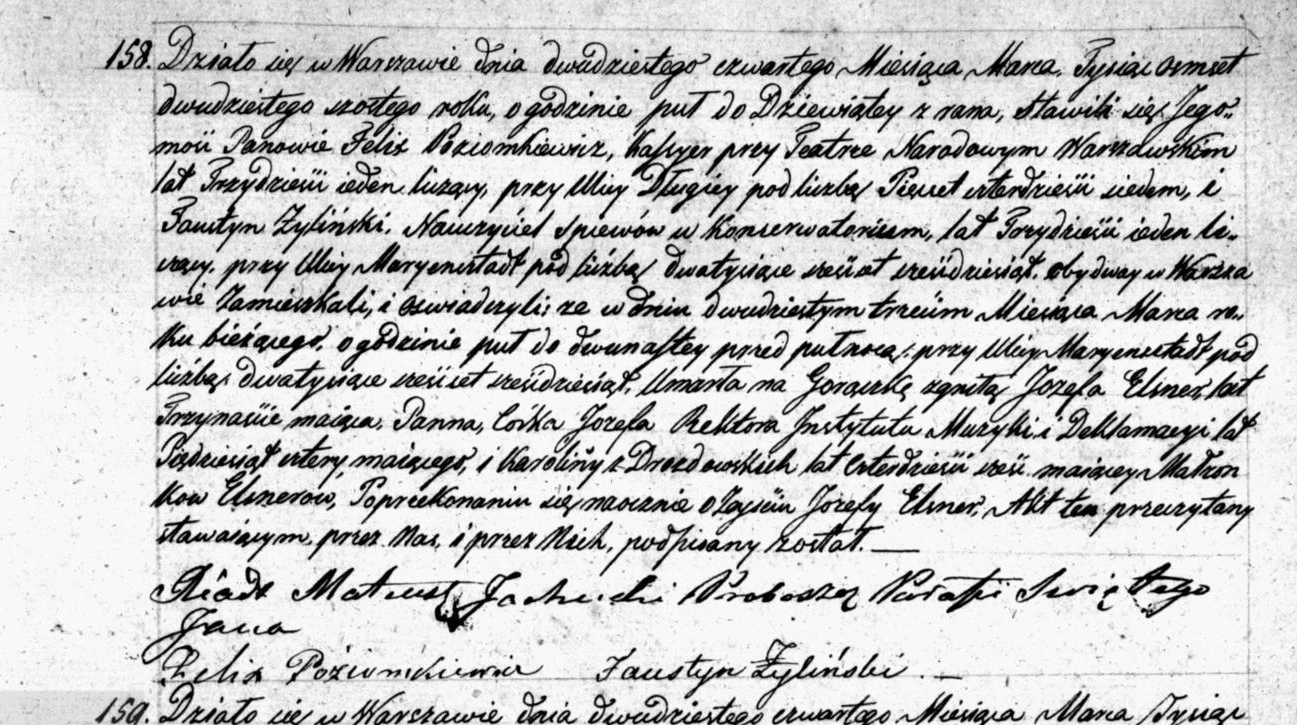 158. Działo się w Warszawie dnia dwudziestego czwartego Miesiąca Marca. Tysiąc osmset
dwudziestego szostego roku, o godzinie puł do Dziewiątey z rana, stawili się Jego„
mość Panowie Felix Poziomkiewicz, Kassyer przy Teatrze Narodowym Warszawskim
lat Trzydzieści ieden liczący, przy Ulicy Długiey pod liczbą Pięcset czterdzieści siedem, i
Faustyn Zyliński, Nauczyciel spiewów w Konserwatorium, lat Trzydzieści ieden li„
czący, przy Ulicy Maryensztadt pod liczbą dwatysiące sześćset sześćdziesiąt. obydway w Warsza
wie Zamieszkali, i oswiadczyli; ze w dniu dwudziestym trzecim Miesiąca Marca ro„
ku bieżącego, o godzinie puł do dwunastey przed pułnocą, przy Ulicy Maryensztadt pod
liczbą dwatysiące sześćset sześćdziesiąt, Umarła na Gorączkę zgniłą Jozefa Elsner, lat
Trzynaście maiąca, Panna, Corka Jozefa Rektora Instytutu Muzyki i Deklamacyi lat
Pięćdziesiąt cztery maiącego, i Karoliny z Drozdowskich lat czterdzieści sześć maiącey Małżon
kow Elsnerow, Poprzekonaniu się naocznie o Zeysciu Jozefy Elsner, Akt ten przeczytany
stawaiącym, przez Nas, i przez Nich, podpisany został. —
Xiądz Mateusz Proboszcz Parafii Swiętego
Jana
Felix Poziomkiewicz Faustyn Żyliński —
159. Działo się w Warszawie dnia dwudziestego czwartego Miesiąca Marca Tysiąc